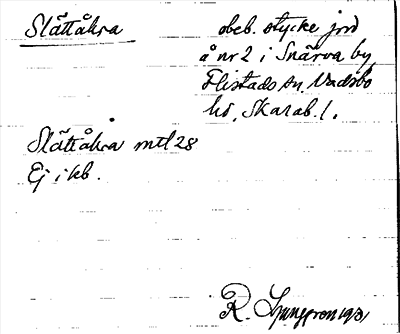 Slättåkra
obeb. stycke jord
å nr 2 i Snärva by
Flistads sn, Vadsbo
hd, Skarab. l.
Slättåkra mtl 28
Ej i kb.
R. Ljunggren 1931